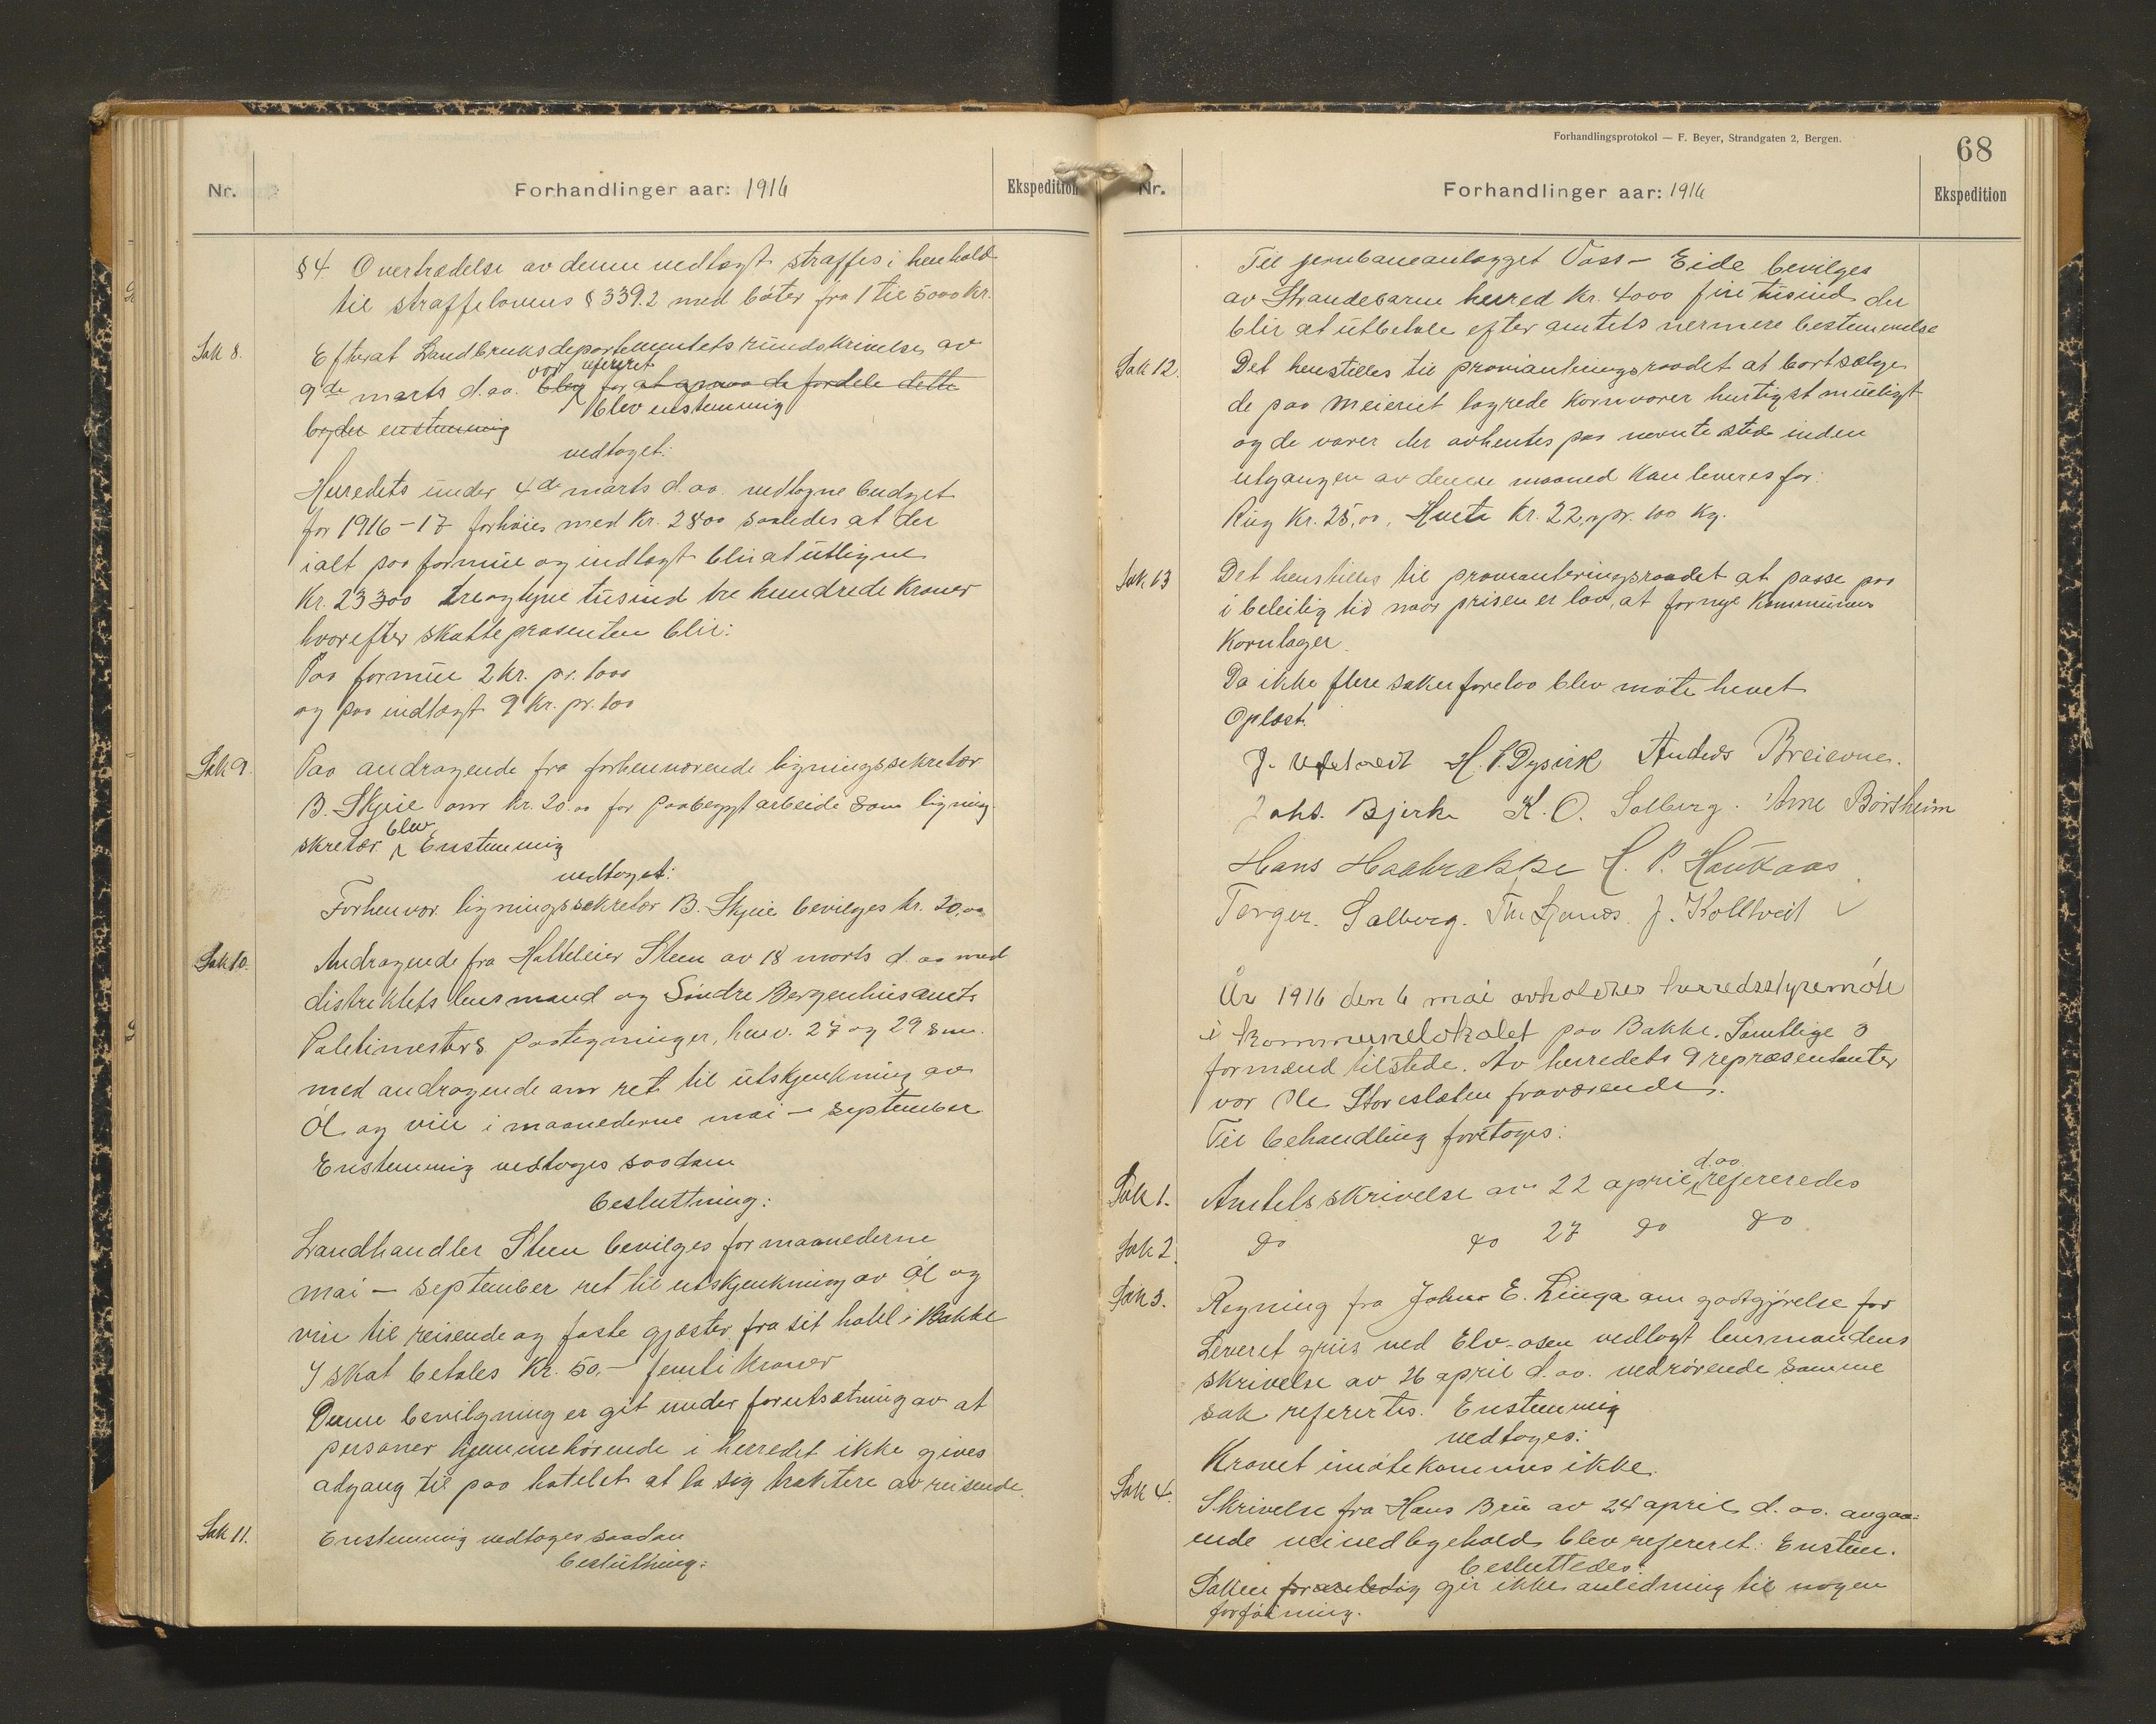 Nr.
Forhandlinger aar: 1916
Ekspedition
§ 4. Overtrædelse av denne vedtægt straffes i henhold
til straffelovens § 339.2 med bøter fra 1 til 5000 kr.
Sak 8.
Efterat Landbruksdepartementets rundskrivelse av
9de marts d.aa. var referert blev enstemmig
vedtaget:
Herredets under 4de marts d.aa. vedtagne budget
for 1916-17 forhöies med Kr. 2800 saaledes at der
ialt paa formue og indtægt blir at utligne
Kr. 23300 treogtyve tusind tre hundrede Kroner
hvorefter skatteprosenten blir:
Paa formue 2 kr. pr. 1000
og paa indtægt 9 Kr. pr. 100
Sak 9.
Paa andragende fra forhenværende ligningssekretær
B. Skjeie om kr. 20.00 for paabegynt arbeide som ligning-
skretær blev Enstemmig
vedtaget:
Forhenvær. ligningssekretær B. Skjeie bevilges kr. 20,00
Sak 10.
Andragende fra Hotteleier Steen av 18 marts d. aa med
distriktets lensmand og Söndre Bergenhus amts
Politimesters paategninger, henv. 27 og 29 s.m.
med andragende om ret til utskjenkning av
Öl og vin i maanederne mai - september
Enstemmig vedtoges saadan
beslutning:
Landhandler Steen bevilges for maanederne
mai - september ret til utskjenkning av öl og
vin til reisende og faste gjæster fra sit hotel i Bakke
I skat betales Kr. 50.- femti kroner
Denne bevilgning er git under forutsætning av at
personer hjemmehörende i herredet ikke gives
adgang til paa hotellet at la sig traktere av reisende.
Sak 11.
Enstemmig vedtoges saadan
beslutning:
Forhandlingsprotokol — F. Beyer, Strandgaten 2, Bergen.
68
Nr.
Forhandlinger aar: 1916
Ekspedition
Til jernbaneanlægget Voss - Eide bevilges
av Strandebarm herred Kr. 4000 fire tusind der
blir at utbetale efter amtets nermere bestemmelse
Sak 12.
Det henstilles til provianteringsraadet at bortsælge
de paa meieriet lagrede kornvarer hurtigst mueligt
og de varer der avhentes paa nevnte sted inden
utgangen av denne maaned kan leveres for:
Rug Kr. 25,00, Hvete Kr. 22,00 pr. 100 Kg.
Sak 13
Det henstilles til provianteringsraadet at passe paa
i beleilig tid naar prisen er lav, at fornye kommunens
Kornlager.
Da ikke flere saker forelaa blev möte hevet
Oplæst.
J. H. P. Dysvik Anders Breievne.
Johs. Bjerke K. O. Solberg. Arne Börsheim
Hans H. P. Haukaas
Torger. Solberg. J. Koltveit
År 1916 den 6 mai avholdtes herredsstyremöte
i kommunelokalet paa Bakke. Samtlige 3
formænd tilstede. Av herredets 9 repræsentanter
var Ole Storeslæten fraværende.
Til behandling foretoges:
Sak 1.
Amtets skrivelse av 22 april d.aa. refereredes
Sak 2.
do do 27 do do
Sak 3.
Regning fra Johns E. Linga om godtgjörelse for
Leveret grus ved Elv-osen vedlagt lensmandens
skrivelse av 26 april d.aa. vedrörende samme
sak referertes. Enstemmig
vedtoges:
Kravet imötekommes ikke.
Sak 4.
Skrivelse fra Hans Bru av 24 april d. aa. angaa-
ende veivedlikehold blev refereret. Enstem.
besluttedes:
Saken gir ikke anledning til nogen
forföining.